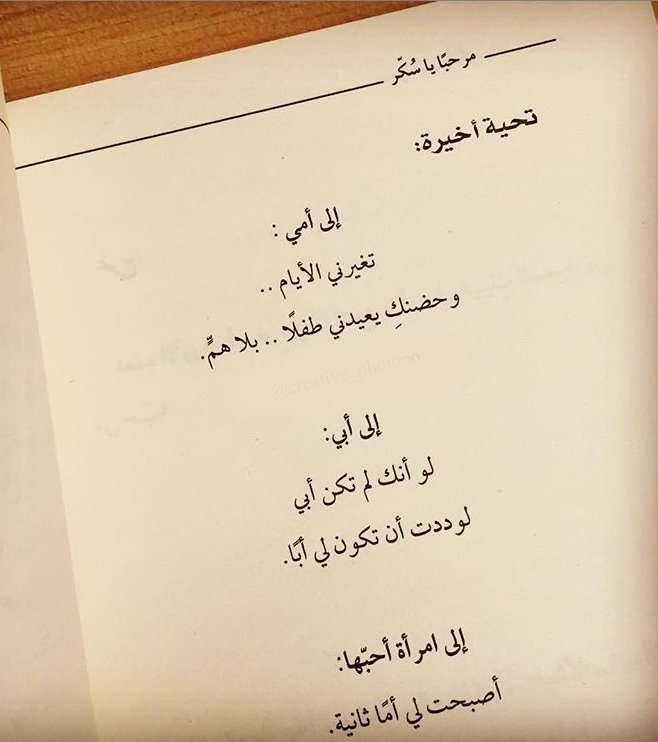 مرحبًا يا سُكّر
تحية أخيرة:
إلى أمي :
تغيرني الأيام ..
وحضنكِ يعيدني طفلًا .. بلا همٍّ.
@creative_photooo
إلى أبي:
لو أنك لم تكن أبي
لوددت أن تكون لي أبًا.
إلى امرأة أحبّها:
أصبحت لي أمًا ثانية.